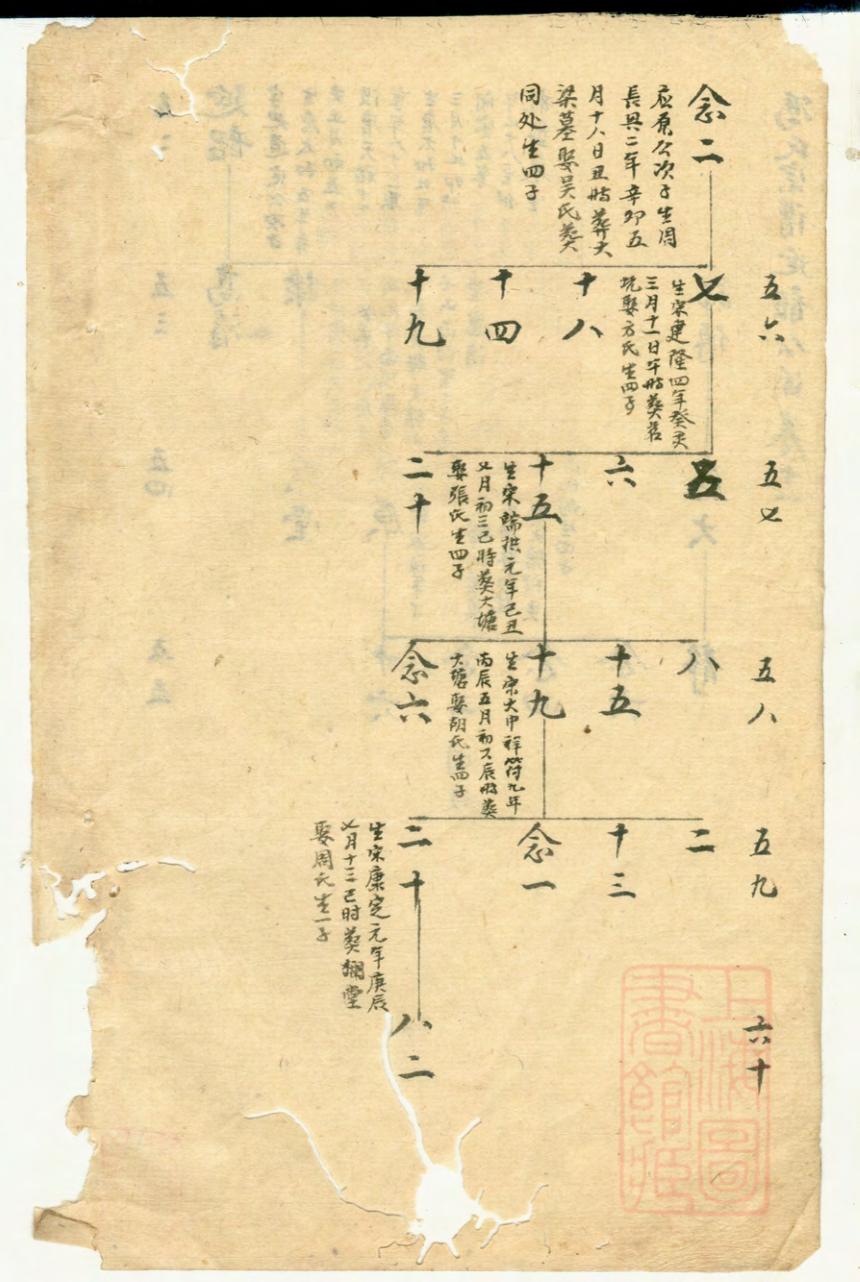 五六
五七
五八
五九
六十
念二
應原公次子生周
長興二年辛卯五
月十八日丑時葬大
梁墓娶吴氏葬
同处生四子
七
生宋建隆四年癸亥
三月十一日午時葬
坑娶方氏生四子
十八
十四
十九
五
六
十五
生宋端拱元年己丑
七月初三巳時葬大塘
娶張氏生四子
二十
八
十五
十九
生宋大中祥符九年
丙辰五月初六辰時葬
大塘娶胡氏生四子
念六
二
十三
念一
二十
生宋康定元年庚辰
七月十三巳时葬堂
娶周氏生一子
八二
上海圖
書館藏